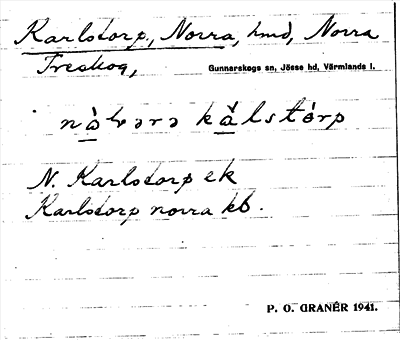 Karlstorp, Norra, hmd, Norra
Treskog,
Gunnarskogs sn, Jösse hd, Värmlands l.
N. Karlstorp ek
Karlstorp norra kb.
P. O. GRANÉR 1941.